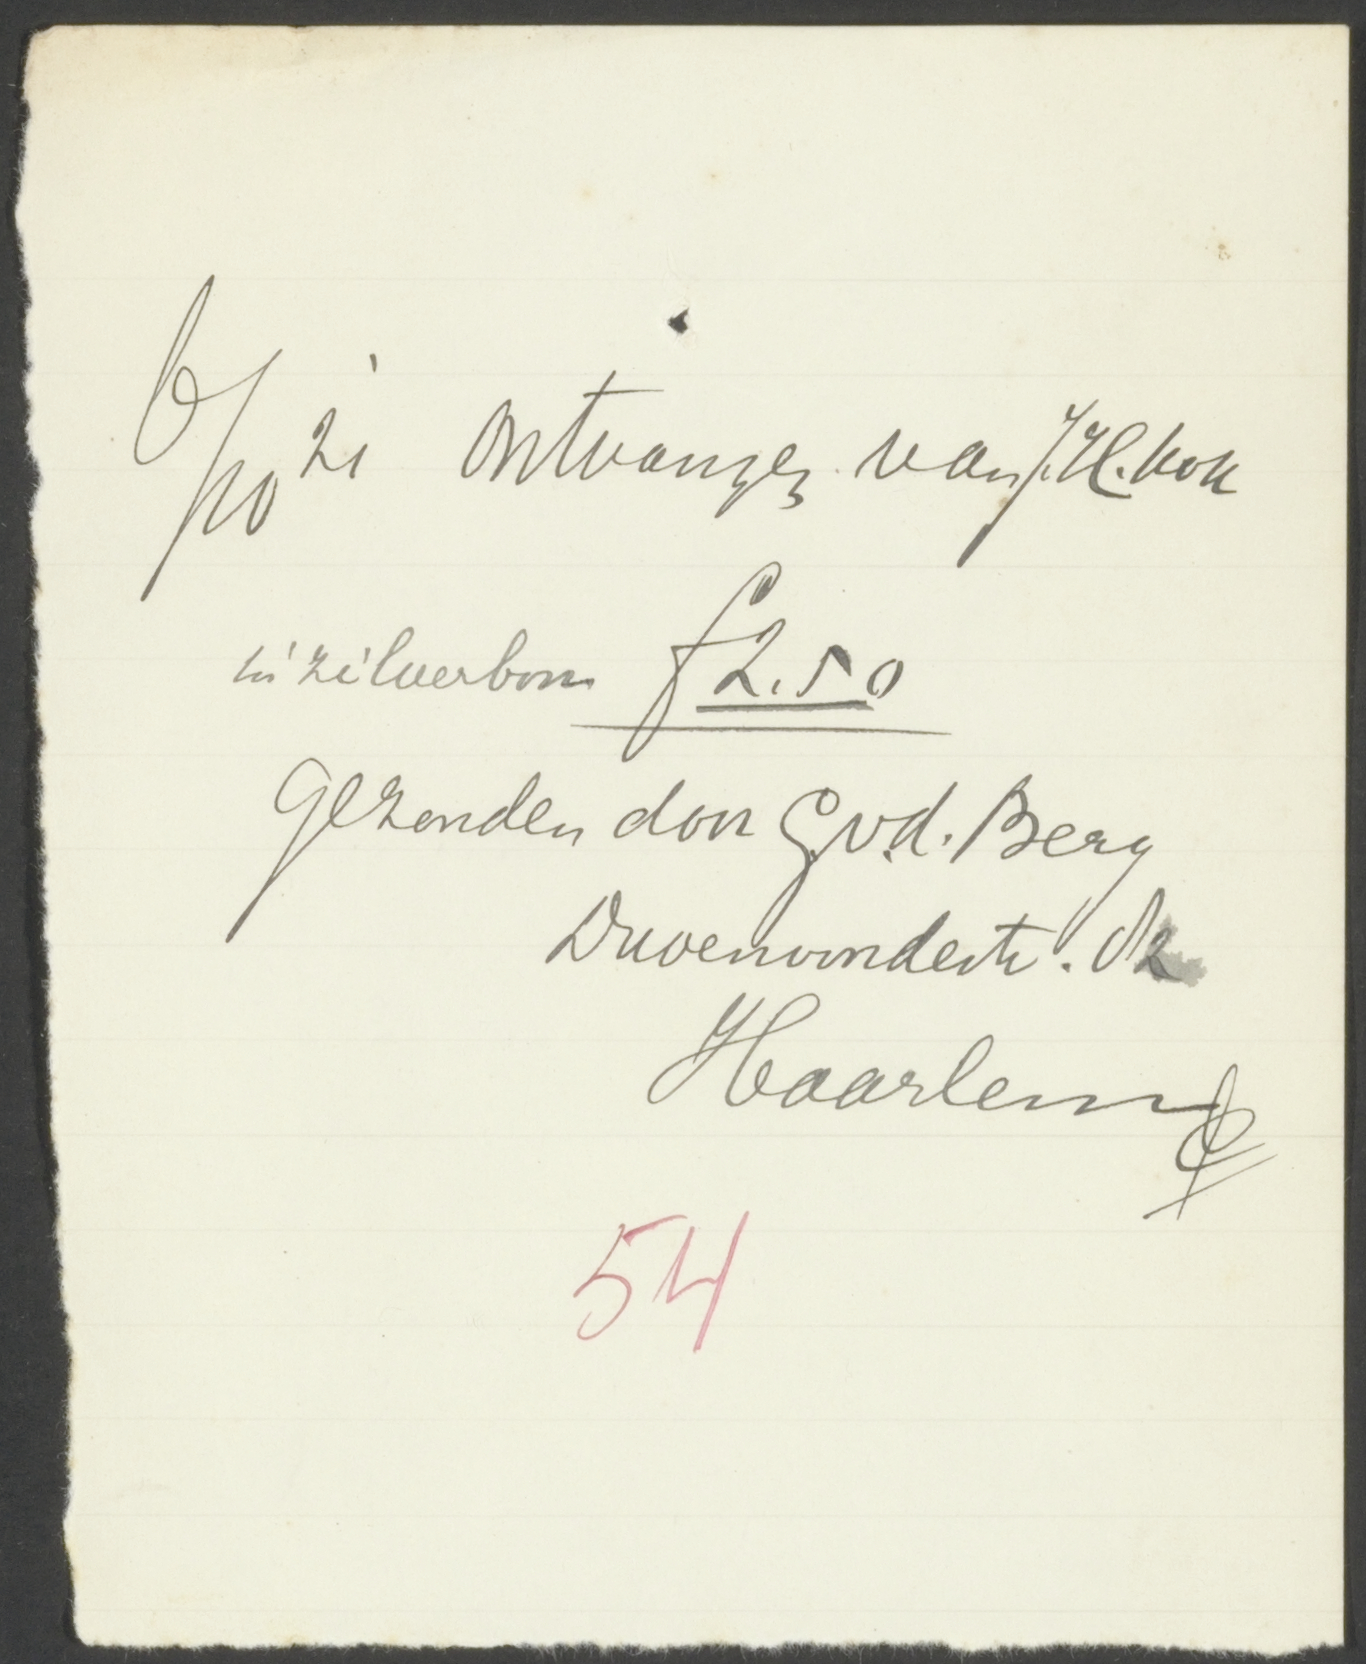 6/10 21 ontvangen van J.H. Kok
in zilverbon f 2.50
gezonden door G.v.d. Berg
Duvenvoordestr.
Haarlem
54